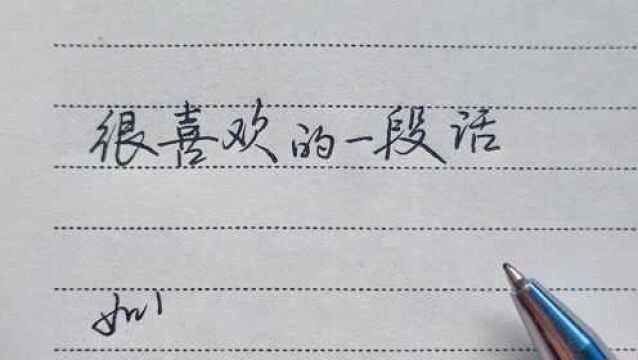 很喜欢的一段话
如